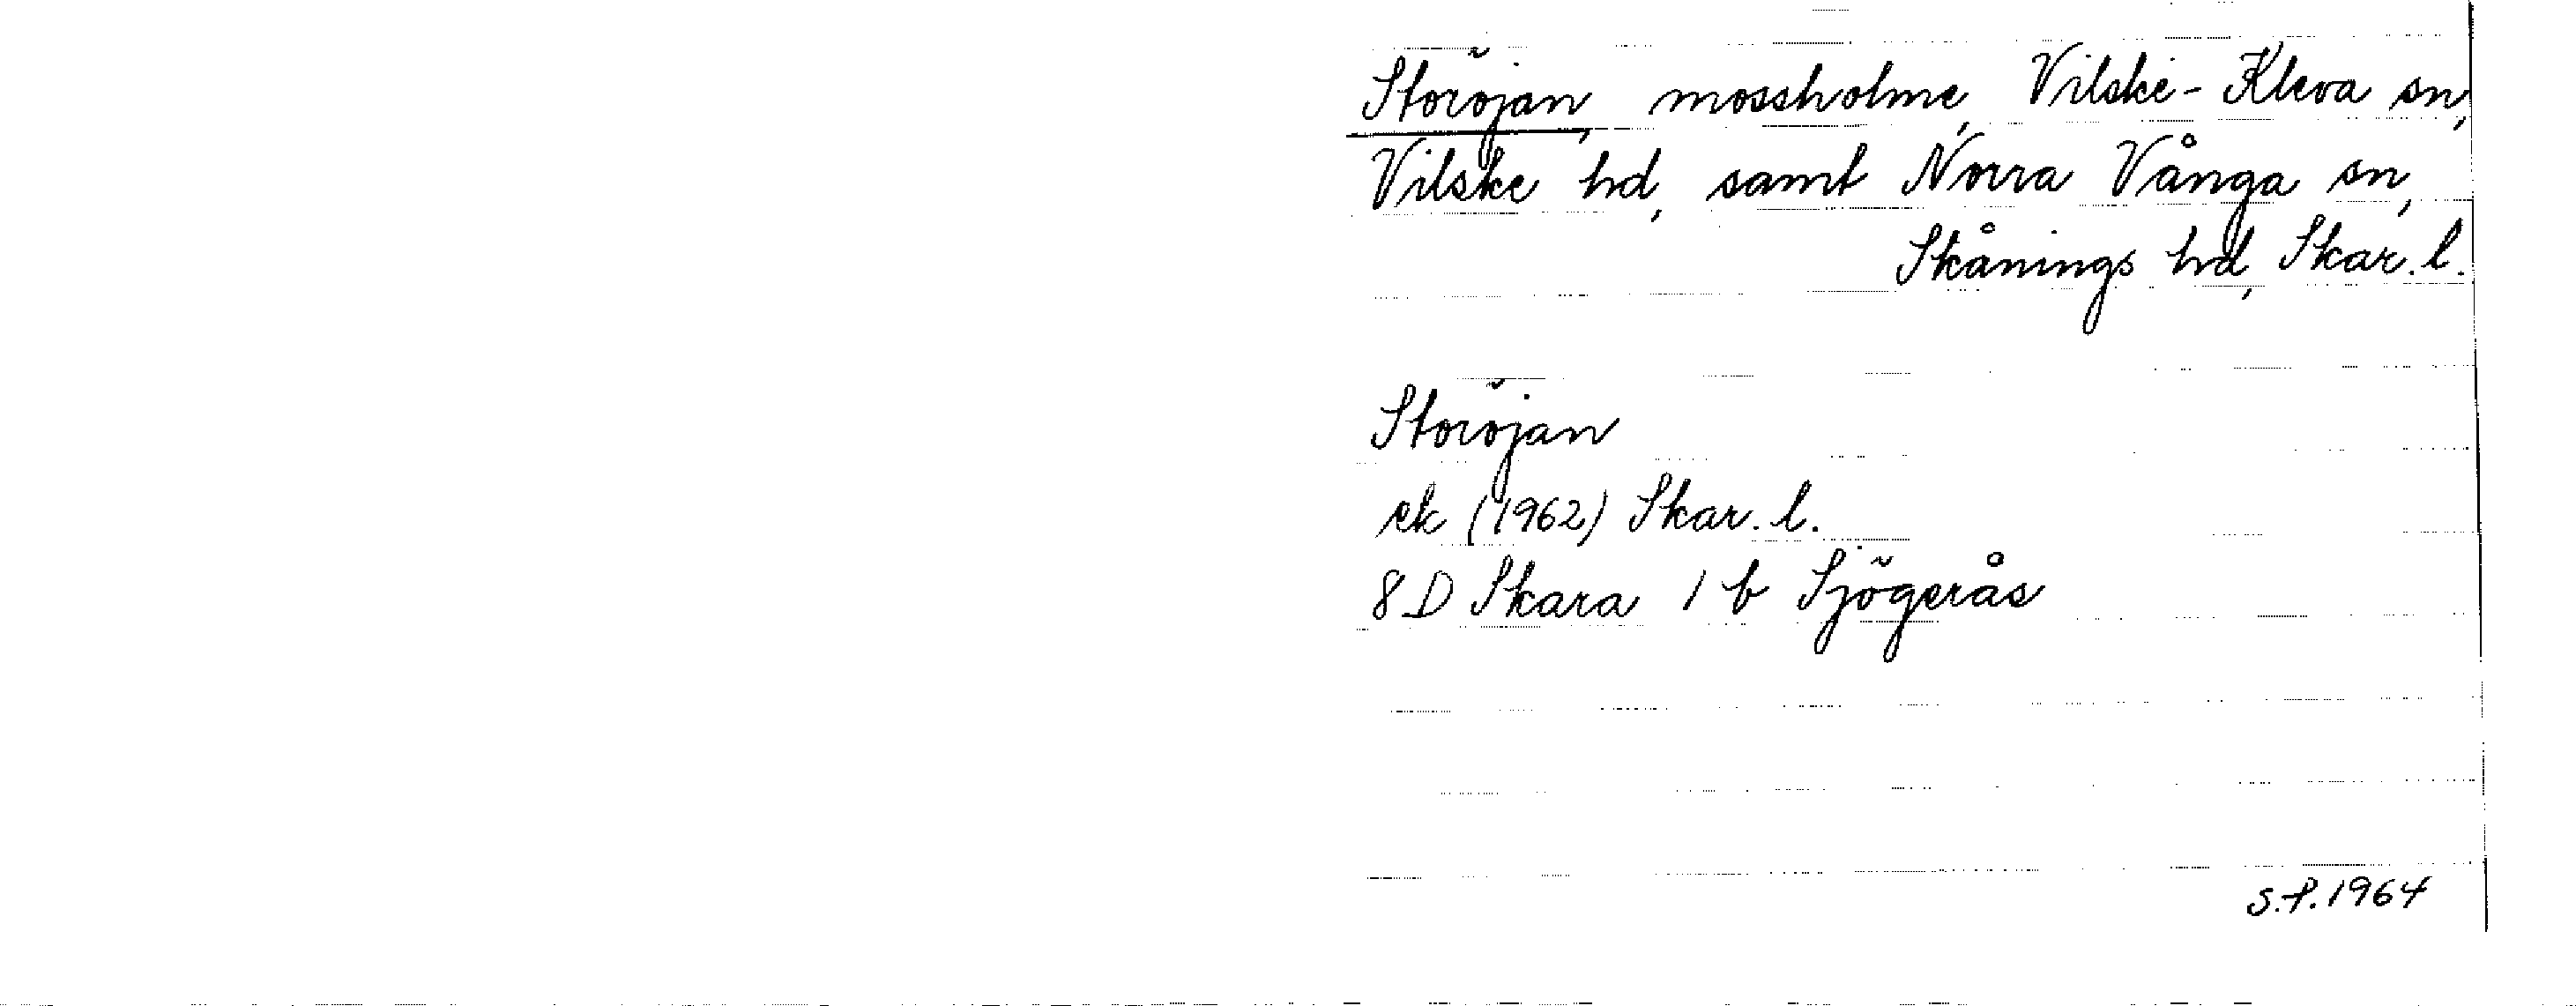 Storöjan, mossholme, Vilske-Kleva sn,
Vilske hd, samt Norra Vånga sn,
Skånings hd, Skar. l.
Storöjan
ek (1962) Skar. l.
8D Skara 1 b Sjögerås
S.P. 1964